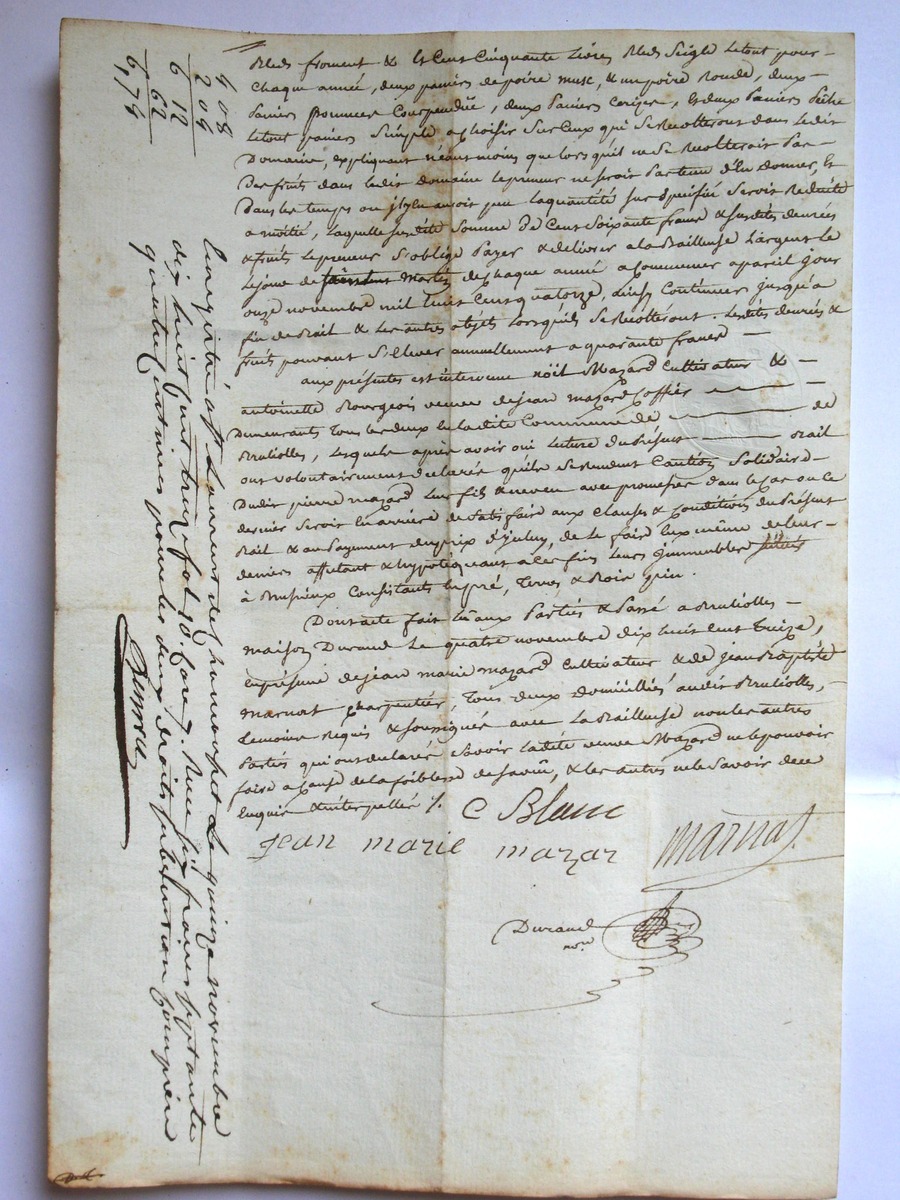 Bled froment & et Cent Cinquante Livres Bled Seigle le tout pour
Chaque année, deux paniers de poire musc, & un poire Ronde, deux
Paniers pommes Courpendüe, deux Paniers Cerise, et deux Paniers Pêche
le tout paniers Simple a Choisir Sur Ceux qui Se Recolteront dans ledit
Domaine, expliquant néantmoins que lorsquil ne Se Recolteroit Pas
Des fruits dans ledit domaine le preneur ne seroit Pas tenu d'En donner, Et
Dans les temps ou il y en auroit peu la quantité sus Spécifiée Seroit Reduite
a moitié, Laquelle susdite Somme De Cent Soixante francs & Susdites denrées
& fruits Le preneur S'oblige Payer & délivrer a la Bailleuse L'argent le
le jour de Martin de Chaque année a Commencer a pareil jour
onze novembre mil huit Cent quatorze, ainsy Continuer jusqu'a
fin de Bail & Les autres objets Lorsquils Se Recolteront. Lesdites denrées &
fruits pouvant S'Elever annuellement a quarante francs
aux présentes est intervenu Noël Mazard Cultivateur &
antoinette Bourgeois veuve de jean Mazard Coffier
Demeurants Tous les deux En ladite Commune de de
Brulioles, Lesquels après avoir oui Lecture du Présent Bail
ont volontairement declarés quils Se rendent Caution Solidaire
Dudit pierre mazard Leur fils & neveu avec promesse dans le Cas ou Ce
dernier Seroit En arriere de Satisfaire aux Clauses & Conditions du Présent
Bail & au Payement du prix d'jceluy, de le faire Eux même de leurs
deniers affectant & hypotéquants a Ces fins leurs jmmeubles Situés
à Brusieux Consistants En pré, Terres, & Bois
Dont acte fait Lu aux Parties & Passé a Brulioles
maison Durand Le quatre novembre dix huit Cent Treize,
En présence de jean marie mazard Cultivateur & de jean Baptiste
Marnat Charpentier, Tous deux domiciliés audit Brulioles,
temoins Requis & Soussignés avec La Bailleuse non les autres
Parties qui ont declarés Savoir Ladite veuve Mazard ne le pouvoir
faire a Cause de la foiblesse de Sa vüe, & les autres ne le Savoir de Ce
Enquis & interpellés ./.
C Blanc
jean marie mazar
marnat
Durand
nore
Enregistré à St Laurent de Chamousset Le quinze novembre
dix huit cent treize fol. 90. Case 7. Reçu six francs septante
quatre centimes pour les deux droits subvention Comprise
4 08
2 04
6 12
62
6,74